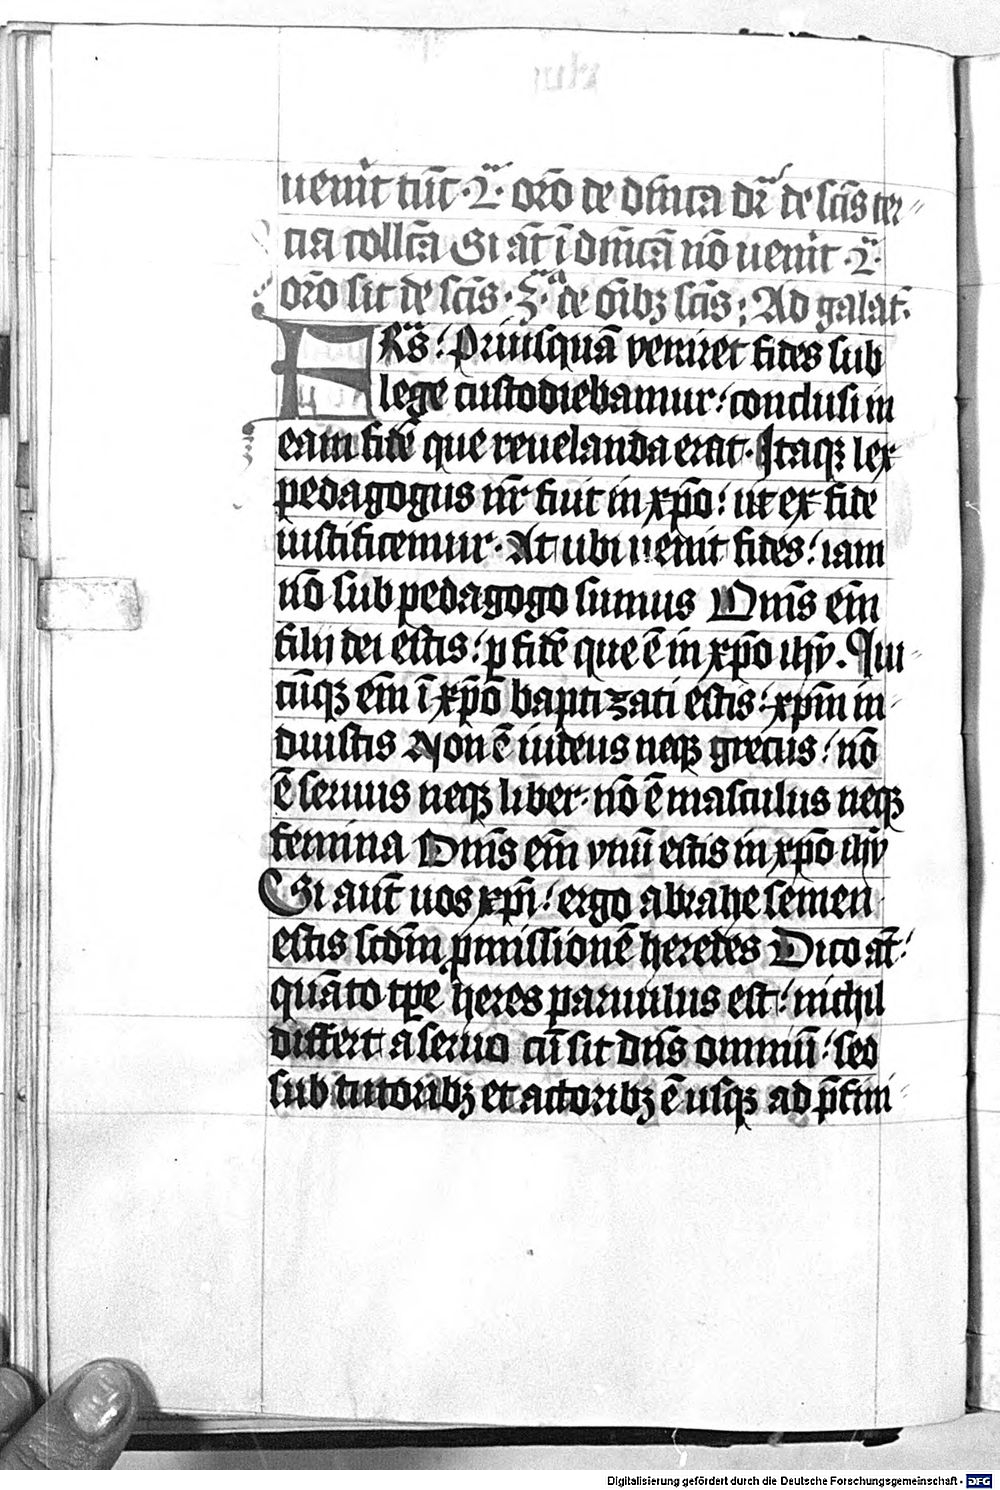 uenit tūc · 2ᵃ · oro̅ de dn̅ica dr̅ de sc̅is ter
cia collc̅a Si at̅ ī dn̅icā nō uenit · 2ᵃ ·
oro̅ sit de sc̅is · 3ᵃ · de oi̅bꝫ sc̅is : Ad galat̅ .
FRs̅ : Priusquā veniret fides sub
lege custodiebamur : conclusi in
eam fidē que reuelanda erat · Itaqꝫ lex
pedagogus nr̅ fuit in xp̅o : ut ex fide
iustificemur · At ubi uenit fides : iam
nō sub pedagogo sumus Om̅s em̅
filij dei estis : ꝑ fidē que ē in xp̅o ihu̅ . Qui
cūqꝫ em̅ ī xp̅o baptizati estis : xp̅m in
duistis Non ē iudeus neqꝫ grecus : nō
ē seruus neqꝫ liber · nō ē masculus neqꝫ
femina Om̅s em̅ vnū estis in xp̅o ihu̅
Si aut̅ uos xp̅i : ergo abrahe semen
estis scd̅m ꝓmissionē heredes Dico at̅ :
quāto tꝑe heres paruulus est : nichil
differt a seruo cū sit dn̅s omniū : sed
sub tutoribꝫ et actoribꝫ ē usqꝫ ad p̅fini
Digitalisierung gefördert durch die Deutsche Forschungsgemeinschaft - DFG